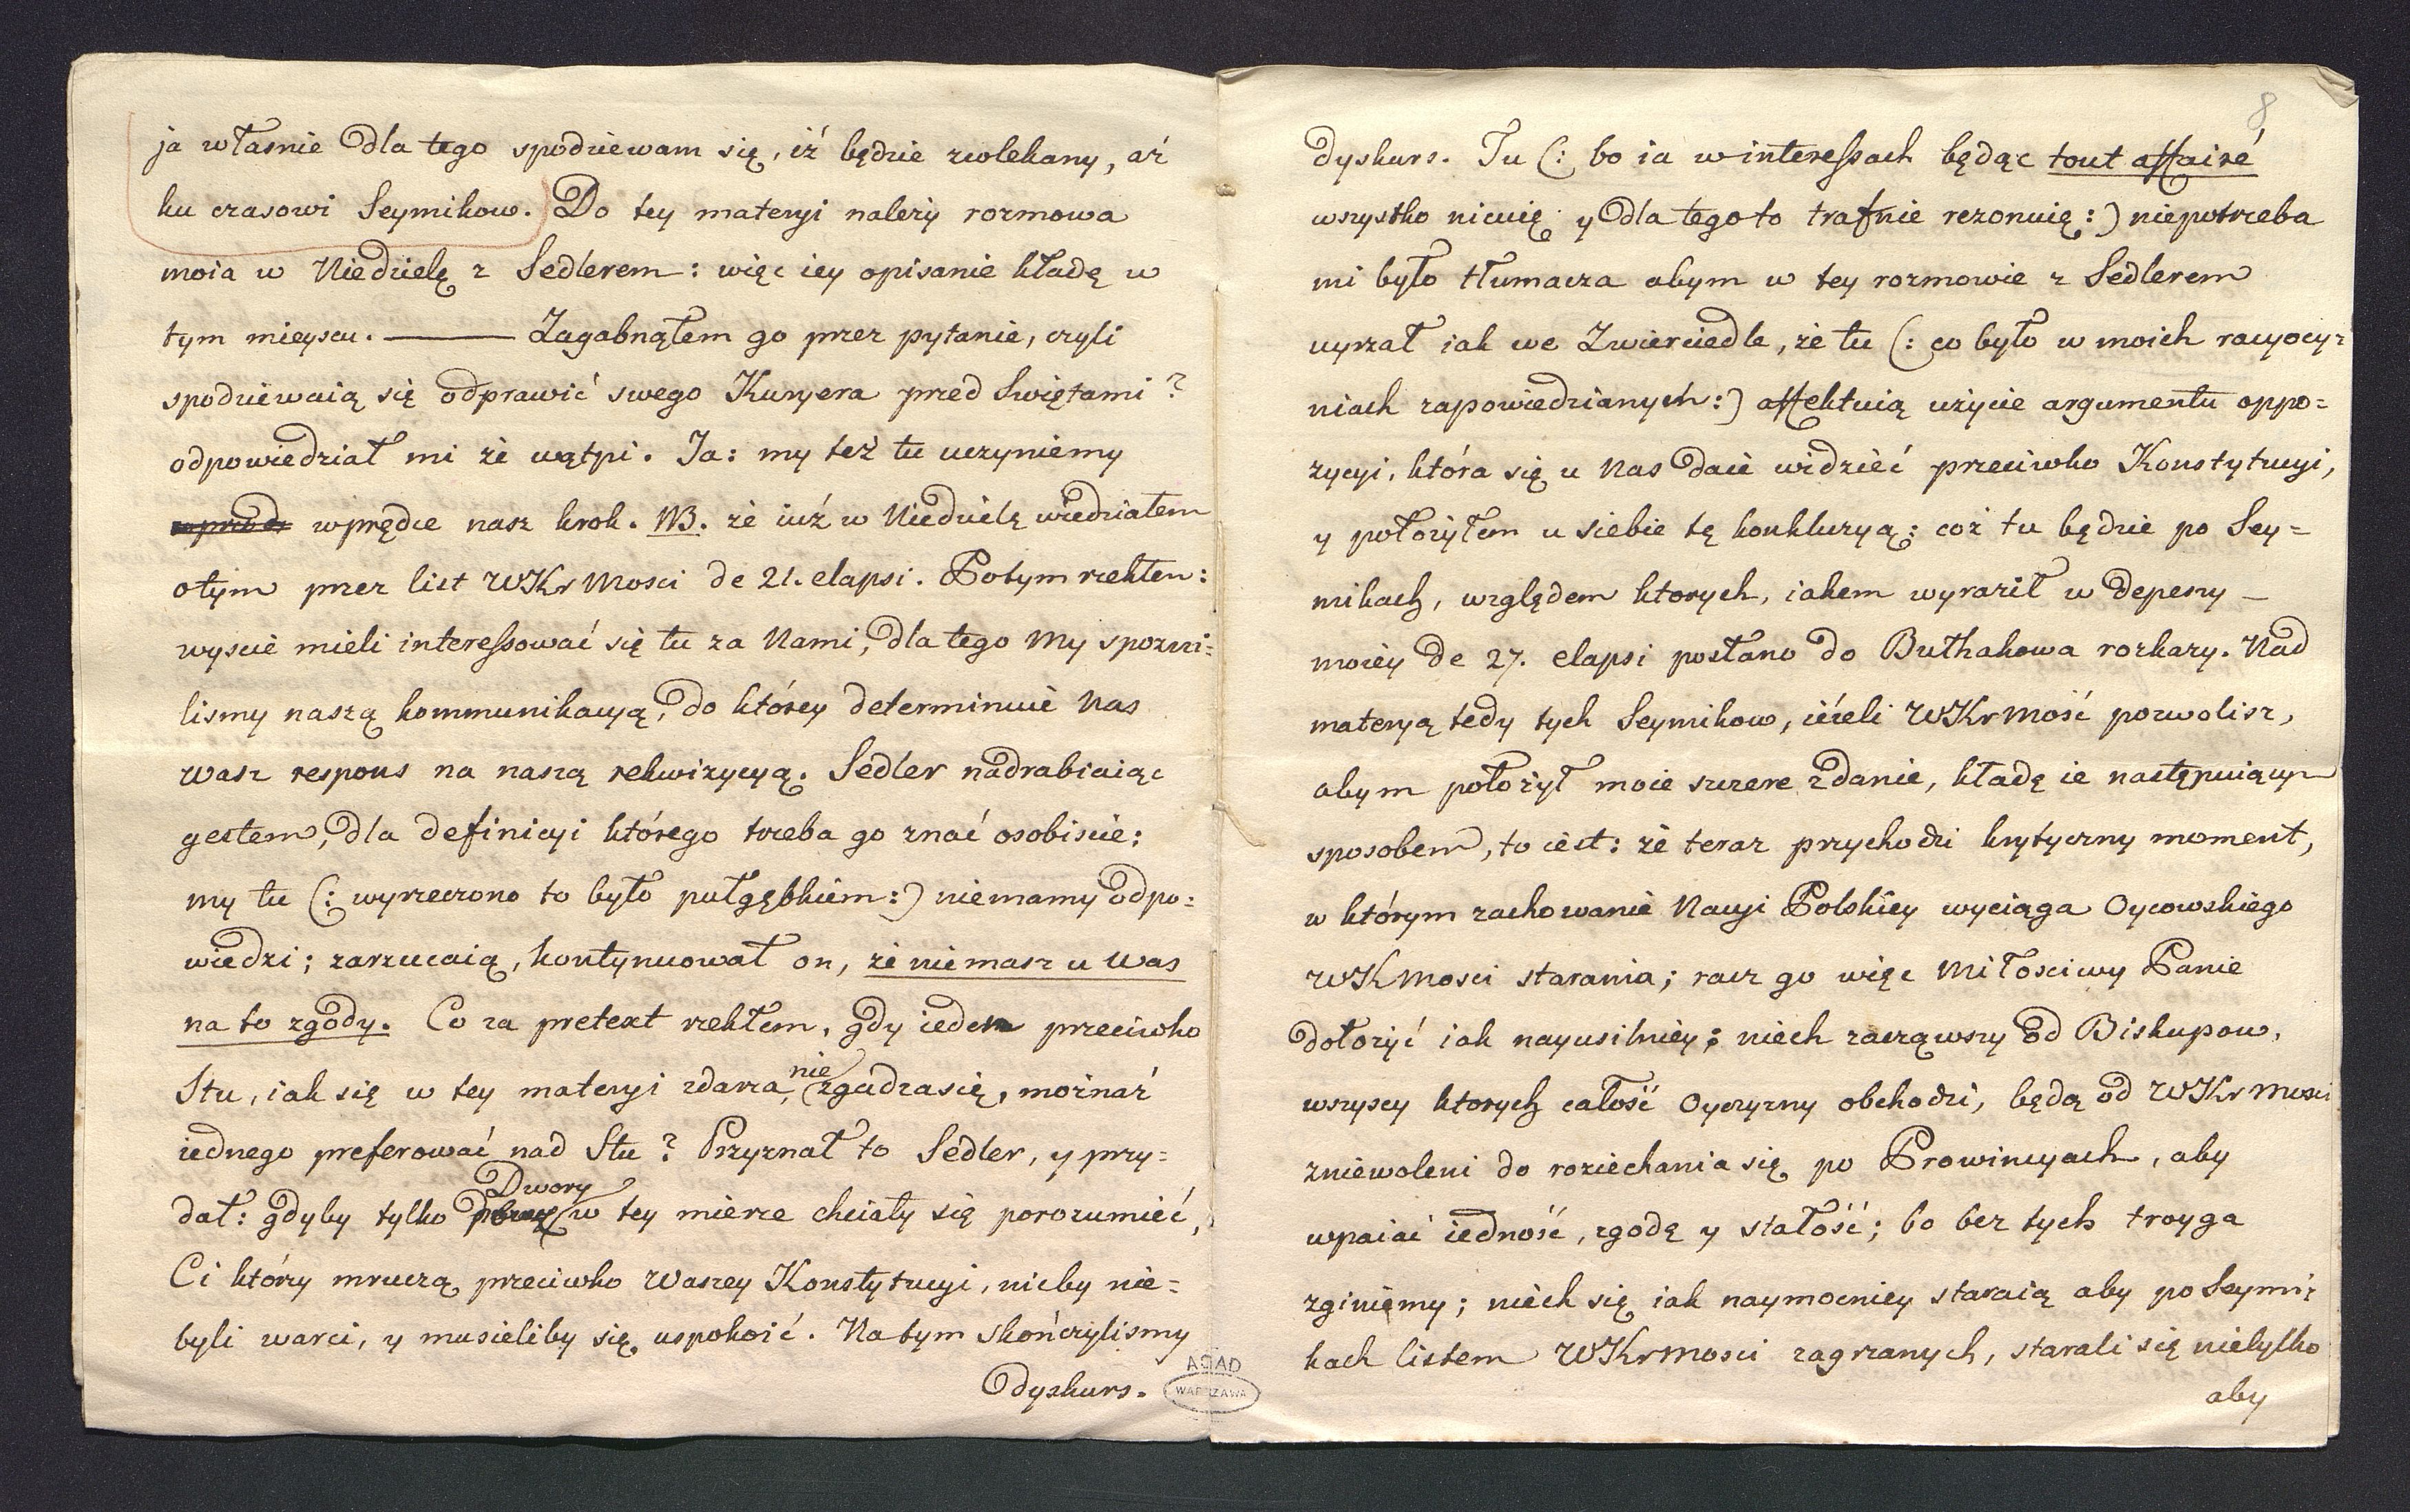 ja własnie dla tego spodziewam się, iż będzie zwlekany, aż
ku czasowi Seymikow. Do tey materyi należy rozmowa
moia w Niedzielę z Sedlerem: więc iey opisanie kładę w
tym mieyscu. ——— Zagabnąłem go przez pytanie, czyli
spodziewaią się odprawić swego Kuryera przed Swiętami?
odpowiedział mi że wątpi. Ja: my też tu uczyniemy
wprędce nasz krok. NB. że iuż w Niedzielę wiedziałem
otym przez list WKr Mosci de 21. elapsi. Potym rzekłem:
wyscie mieli interessować się tu za Nami, dla tego My spozni=
lismy naszą kommunikacyą, do którey determinuie Nas
Wasz respons na naszą rekwizycyą. Sedler nadrabiaiąc
gestem, dla definicyi którego trzeba go znać osobiscie:
my tu (: wyrzeczono to było pułgębkiem :) niemamy odpo=
wiedzi; zarzucaią, kontynuował on, że nie masz u Was
na to zgody. Co za pretext rzekłem, gdy ieden przeciwko
Stu, iak się w tey materyi zdarza, nie zgadza się, możnaż
iednego preferować nad Stu? Przyznał to Sedler, y przy=
dał: gdyby tylko Dwory w tey mierze chciały się porozumieć,
Ci którzy mruczą przeciwko Waszey Konstytucyi, nicby nie=
byli warci, y musieliby się uspokoić. Na tym skończylismy
dyskurs.
ASIAD
WARSZAWA
8
dyskurs. Tu (: bo ia w interessach będąc tout affairé
wszystko nicuię y dla tego to trafnie rezonuię :) niepotrzeba
mi było tłumacza abym w tey rozmowie z Sedlerem
uyrzał iak we Zwierciedle, że tu (: co było w moich racyocy=
niach zapowiedzianych :) affektuią użycie argumentu oppo=
zycyi, która się u Nas daie widzieć przeciwko Konstytucyi,
y położyłem u siebie tę konkluzyą: coż tu będzie po Sey=
mikach, względem ktorych, iakem wyraził w depeszy
moiey de 27. elapsi posłano do Bułhakowa rozkazy. Nad
materyą tedy tych Seymikow, ieżeli WKrMość pozwolisz,
abym położył moie szczere zdanie, kładę ie następuiącym
sposobem, to iest: że teraz przychodzi krytyczny moment,
w którym zachowanie Nacyi Polskiey wyciąga Oycowskiego
WKMosci starania; racz go więc Miłościwy Panie
dołożyć iak nayusilniey; niech zacząwszy od Biskupow,
wszyscy ktorych całość Oyczyzny obchodzi, będą od WKrMosci
zniewoleni do roziechania się po Prowincyach, aby
wpaiać iedność, zgodę y stałość; bo bez tych troyga
zginiemy; niech się iak naymocniey staraią aby po Seymi=
kach listem WKrMosci zagrzanych, starali się nietylko
aby